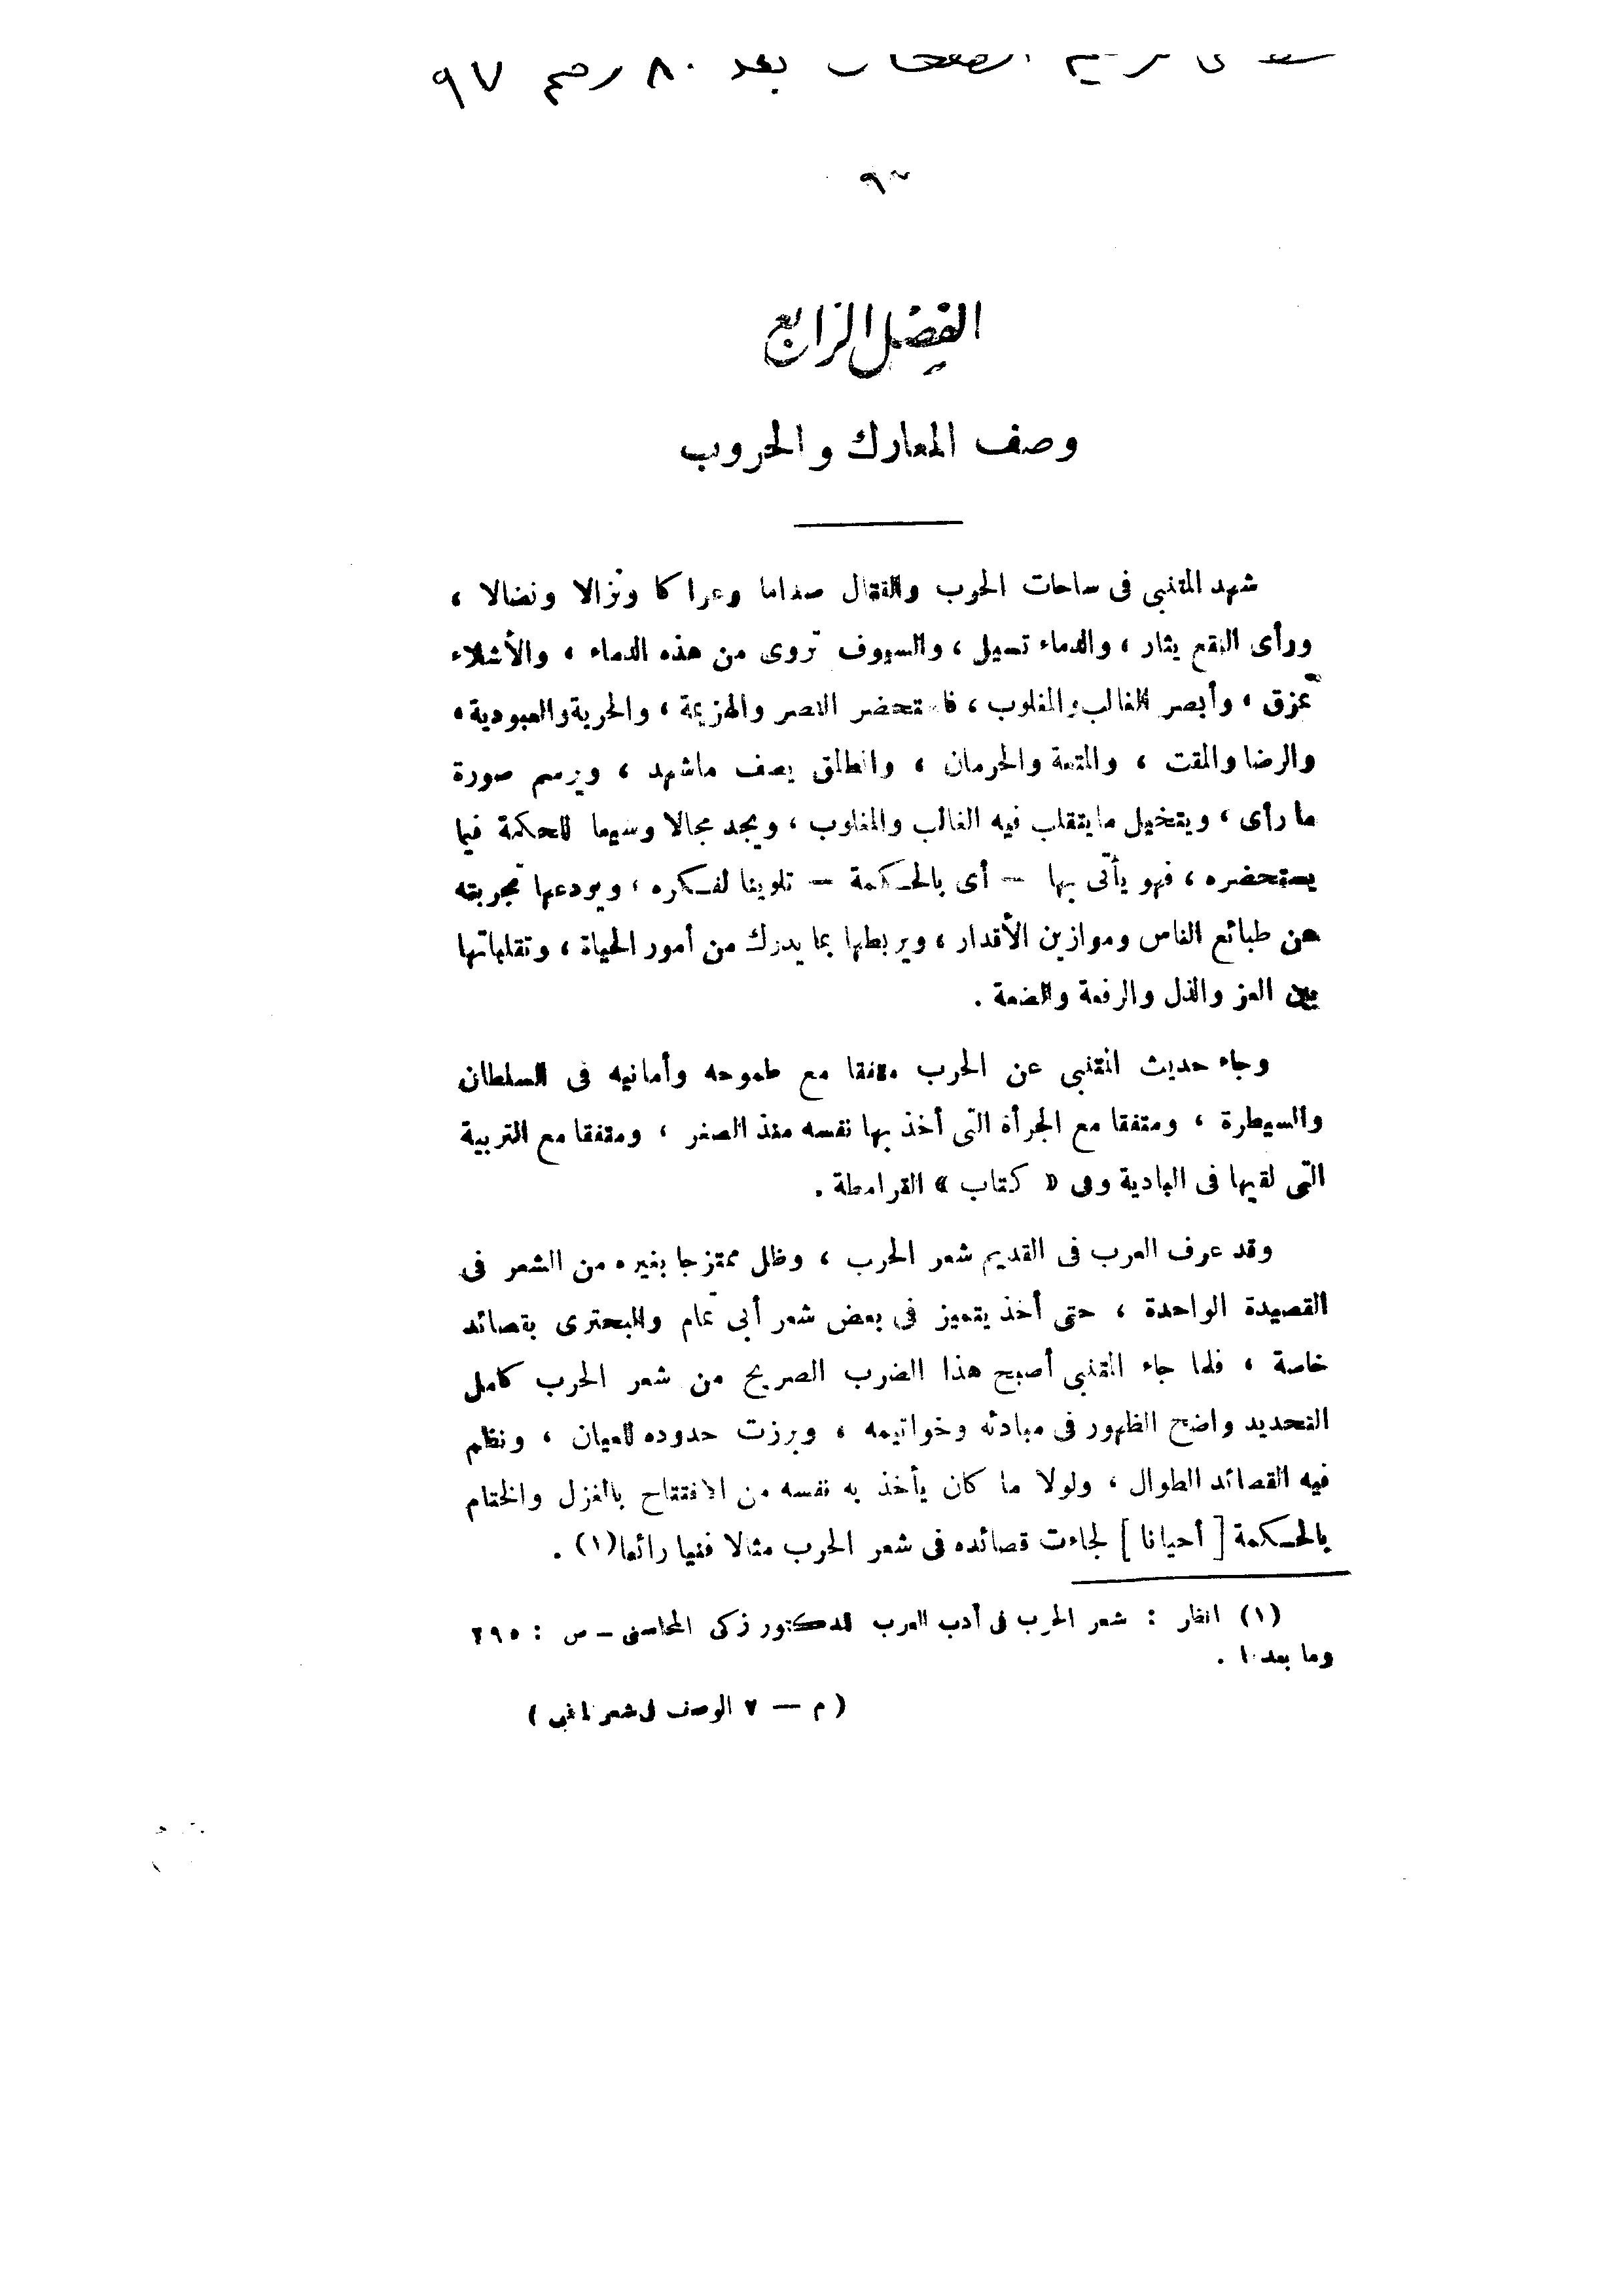 الصفحات بعد ٨٠ رقم ٩٧
٩٧
الفصل الرابع
وصف المعارك والحروب
شهد المتنبى فى ساحات الحرب والقتال صداما وعراكا ونزالا ونضالا ،
ورأى النقع يثار ، والدماء تسيل ، والسيوف تروى من هذه الدماء ، والأشلاء
تمزق ، وأبصر الغالب والمغلوب ، فاستحضر النصر والهزيمة ، والحرية والعبودية ،
والرضا والمقت ، والمتعة والحرمان ، وانطلق يصف ماشهد ، ويرسم صورة
ما رأى ، ويتخيل ما يتقلب فيه الغالب والمغلوب ، ويجد مجالا وسيعا للحكمة فيما
يستحضره ، فهو يأتى بها — أى بالحكمة — تلوينا لفكره ، ويودعها تجربته
عن طبائع الناس وموازين الأقدار ، ويربطها بما يدرك من أمور الحياة ، وتقلباتها
بين العز والذل والرفعة والضعة .
وجاء حديث المتنبى عن الحرب متفقا مع طموحه وأمانيه فى السلطان
والسيطرة ، ومتفقا مع الجرأة التى أخذ بها نفسه منذ الصغر ، ومتفقا مع التربية
التى لقيها فى البادية وفى « كتاب » القرامطة .
وقد عرف العرب فى القديم شعر الحرب ، وظل ممتزجا بغيره من الشعر فى
القصيدة الواحدة ، حتى أخذ يتميز فى بعض شعر أبى تمام والبحترى بقصائد
خاصة ، فلما جاء المتنبى أصبح هذا الضرب الصريح من شعر الحرب كامل
التحديد واضح الظهور فى مبادئه وخواتيمه ، وبرزت حدوده للعيان ، ونظم
فيه القصائد الطوال ، ولولا ما كان يأخذ به نفسه من الافتتاح بالغزل والختام
بالحكمة [ أحيانا ] لجاءت قصائده فى شعر الحرب مثالا فنيا رائعا(١) .
(١) انظر : شعر الحرب فى أدب العرب للدكتور زكى المحاسنى — ص : ٢٩٥
وما بعدها .
( م — ٧ الوصف فى شعر المتنبى )